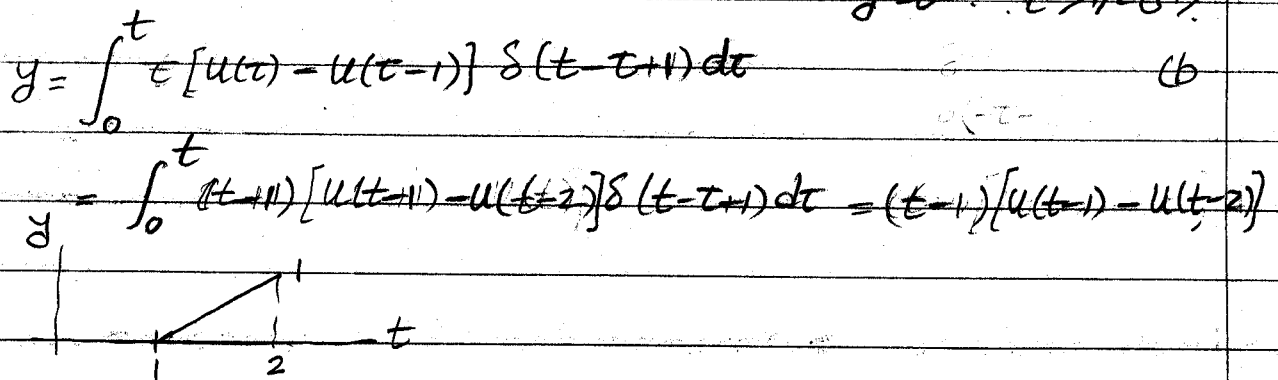 y = ∫₀ᵗ τ [u(τ) - u(τ-1)] δ(t-τ+1) dτ
(b
= ∫₀ᵗ (t-1) [u(t-1) - u(t-2)] δ(t-τ+1) dτ = (t-1) [u(t-1) - u(t-2)]
y
1
t
1 2